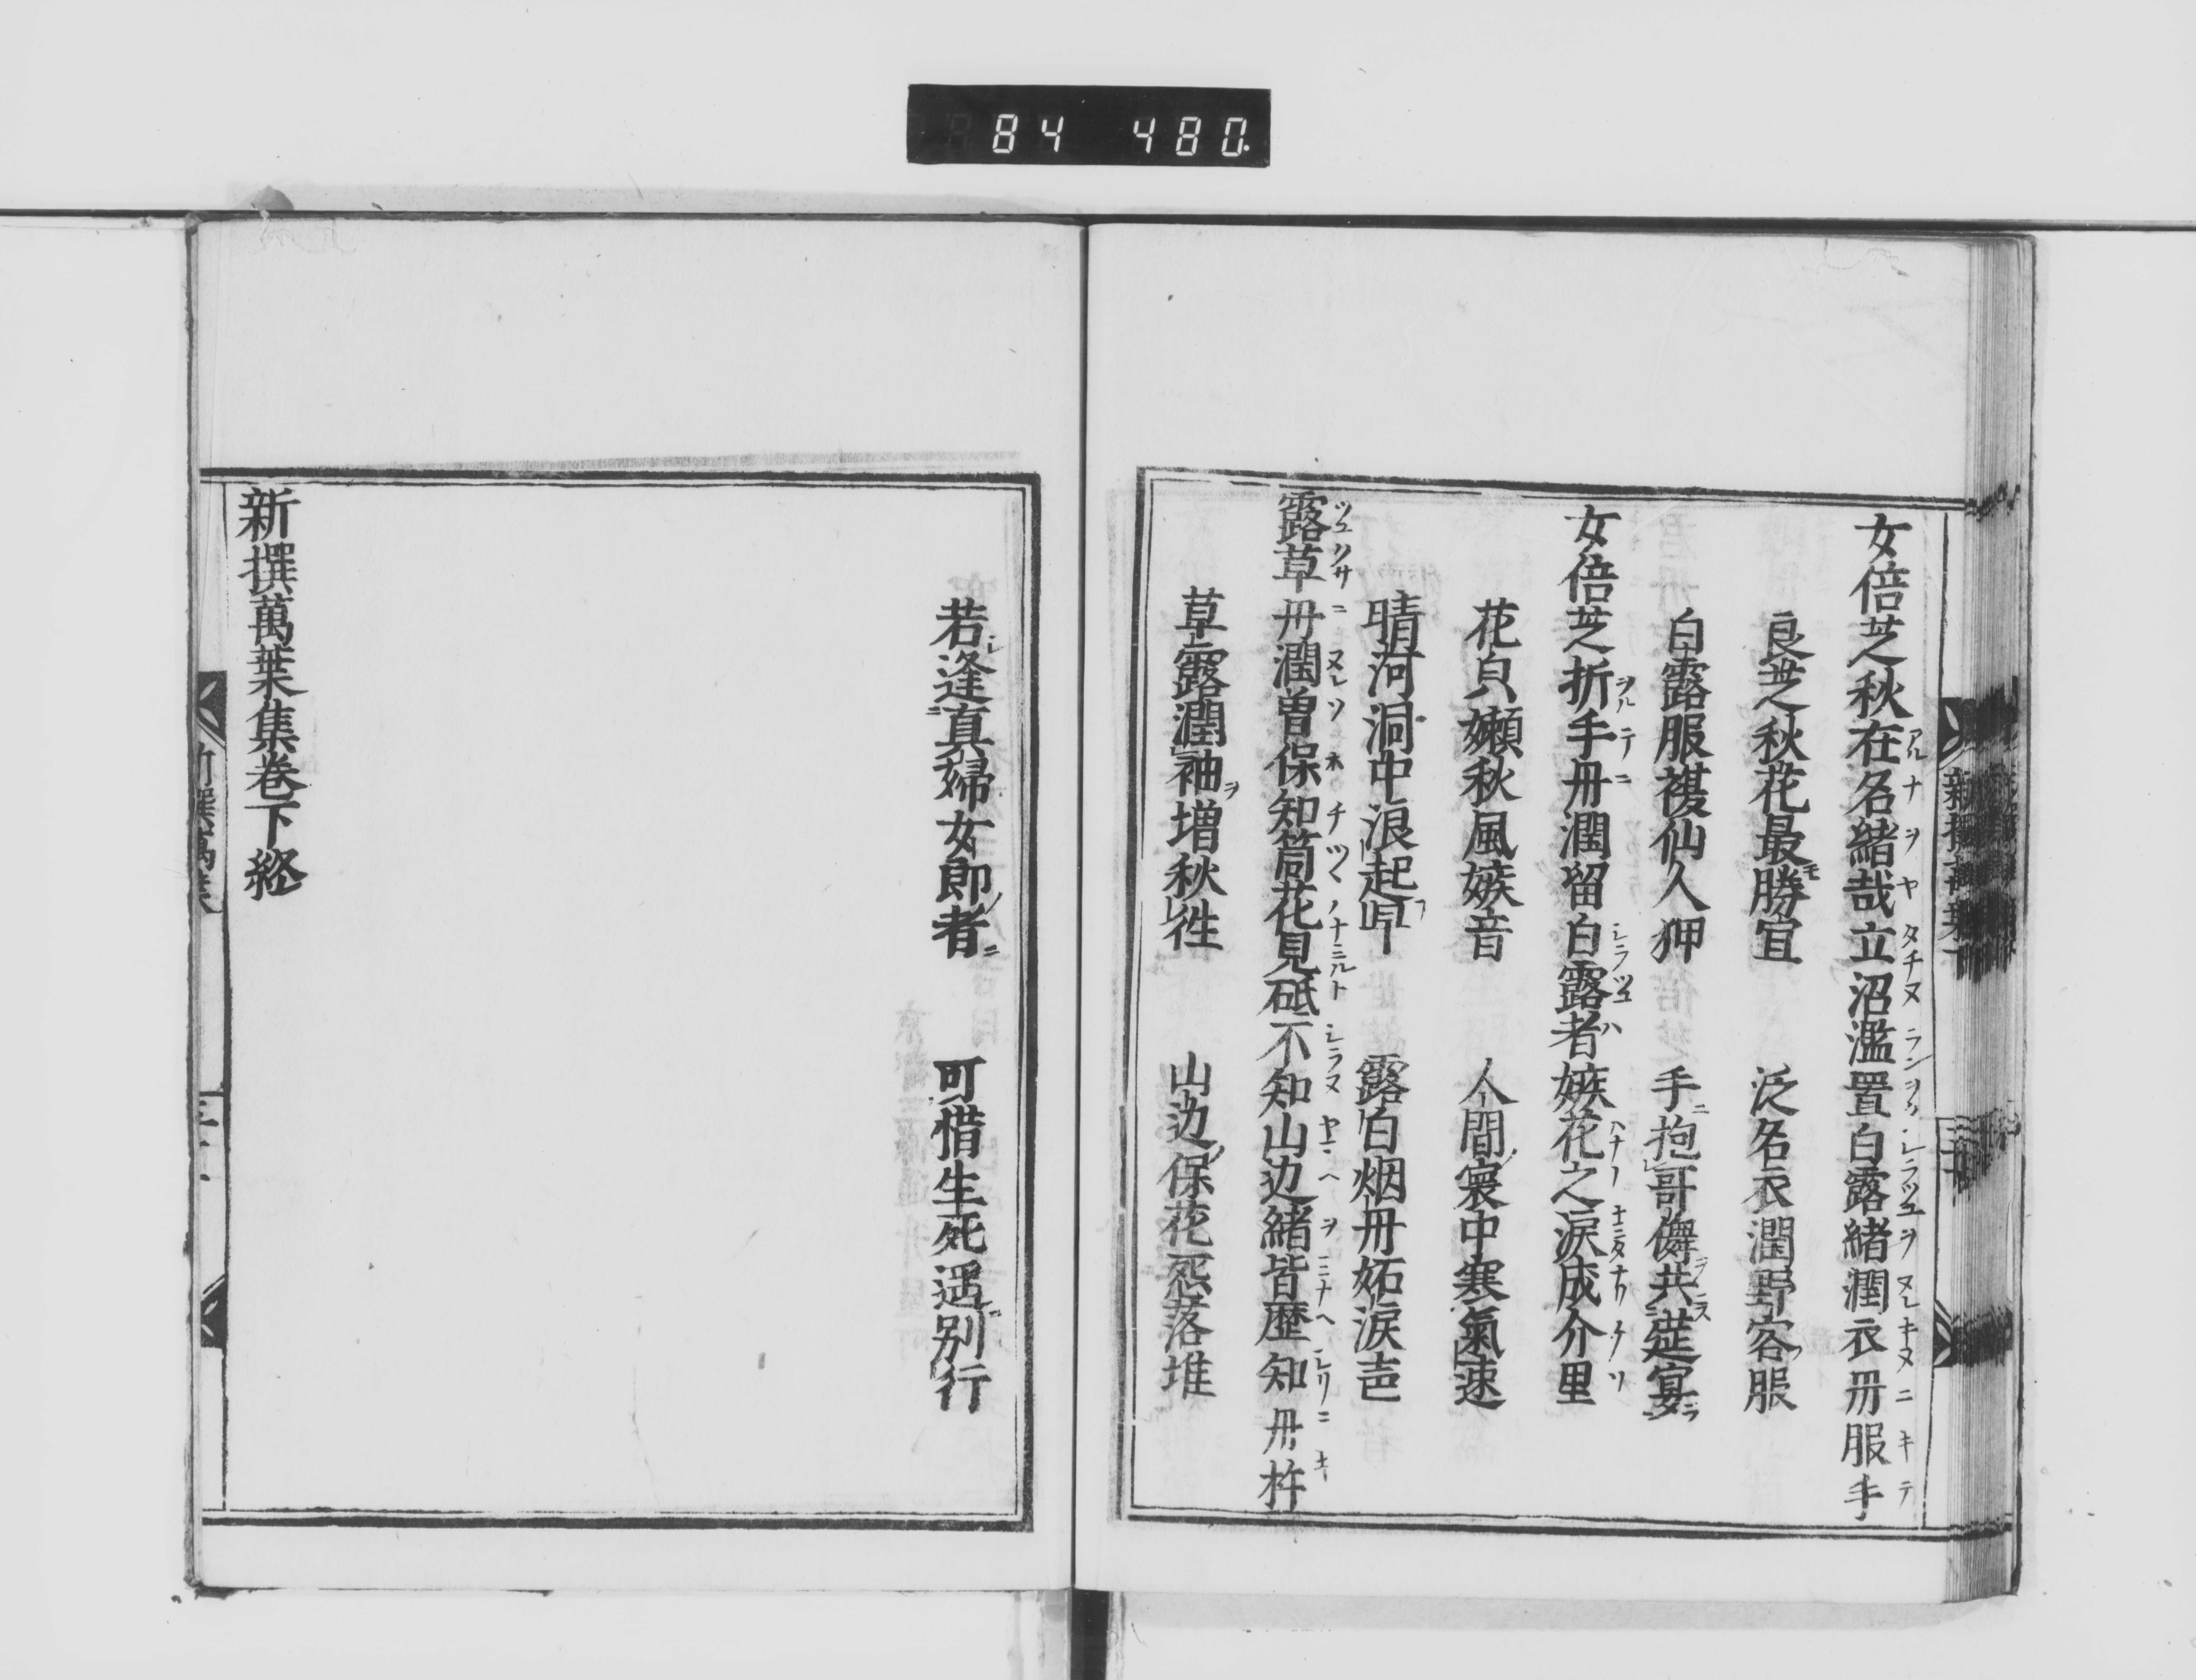 84 480.
女倍芝秋在名緒哉立沼濫置白露緒潤衣丹服手
良芝秋花最勝宜 泛名衣潤野客服
白露服襖仙人狎 手抱哥儛共莚宴
女倍芝折手丹潤留白露者嫉花之淚成介里
花貞嬾秋風嫉音 人間寰中寒氣速
晴河洞中浪起早 露白烟丹妬淚声
露草丹潤曽保知筒花見砥不知山辺緒皆歴知丹杵
草露潤袖増秋往 山辺保花怨落堆
若逢真婦女郎者 可惜生死遥別行
新撰萬葉集巻下終